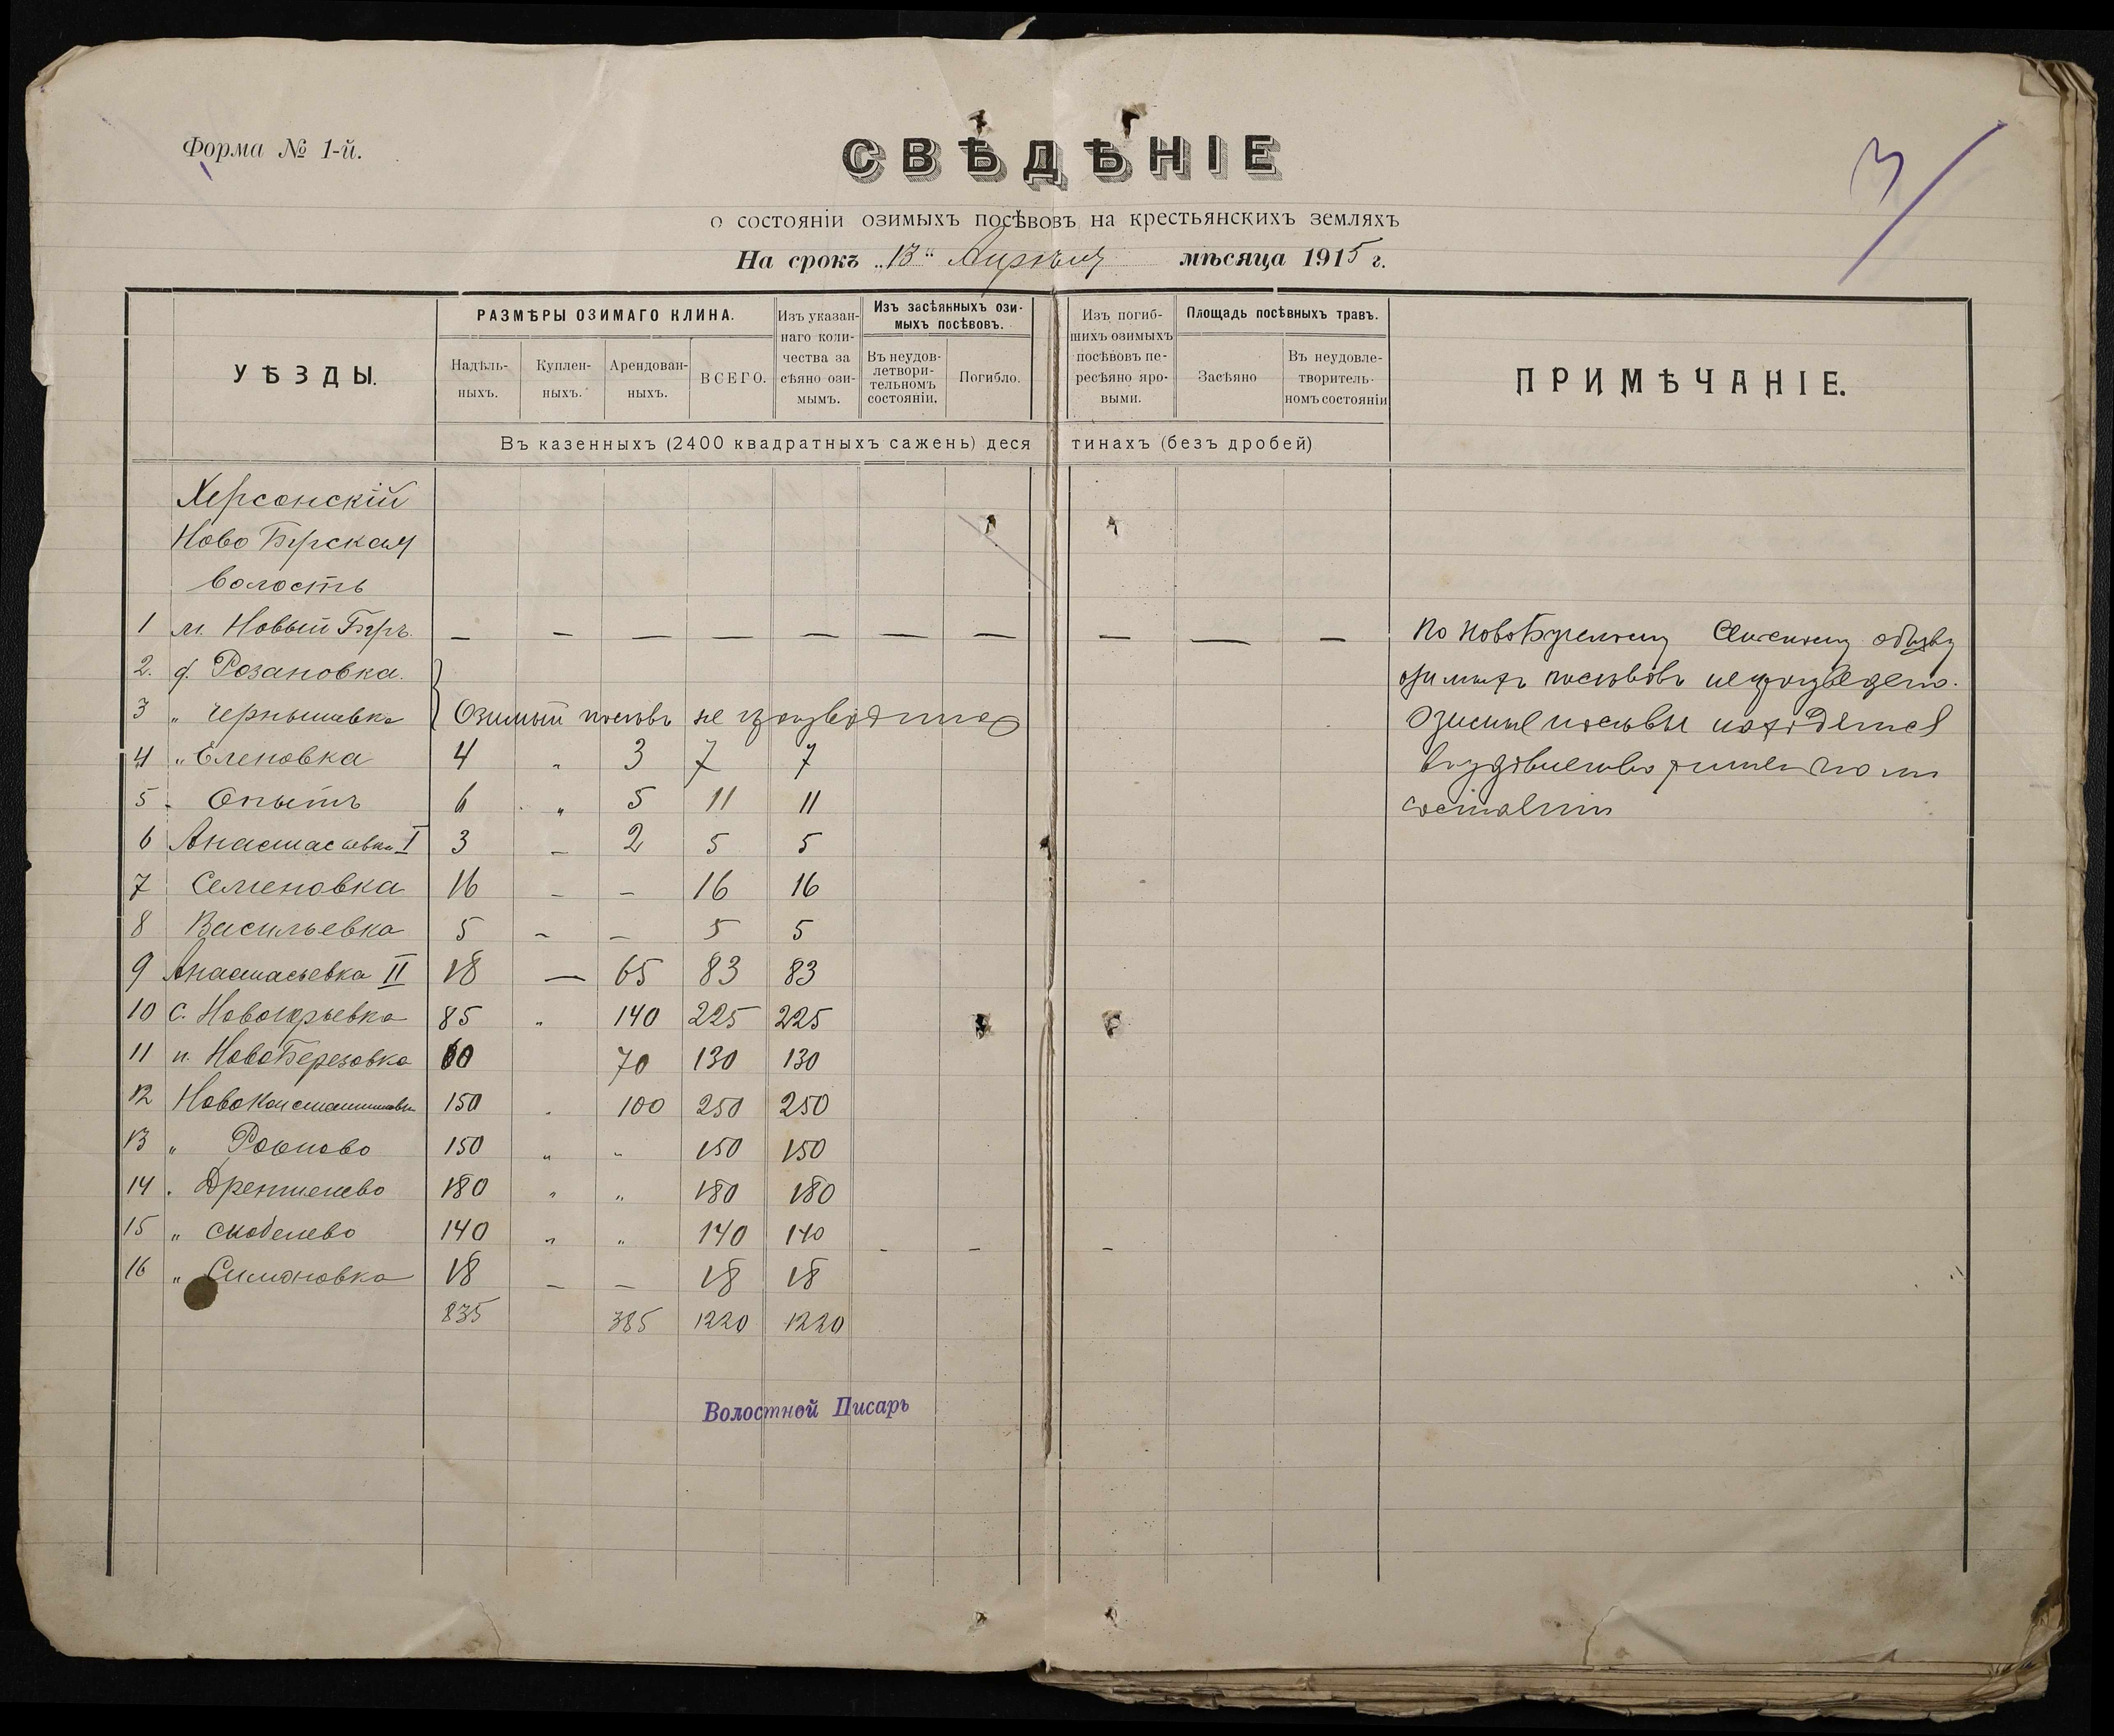 Форма № 1-й.
3
СВѢДѢНІЕ
о состояніи озимыхъ посѣвовъ на крестьянскихъ земляхъ
На срокъ „13" Апрѣля мѣсяца 1915 г.
УѢЗДЫ.
РАЗМѢРЫ ОЗИМАГО КЛИНА.
Надѣль-
ныхъ.
Куплен-
ныхъ.
Арендован-
ныхъ.
ВСЕГО.
Изъ указан-
наго коли-
чества за
сѣяно ози-
мымъ.
Изъ засѣянныхъ ози-
мыхъ посѣвовъ.
Въ неудов-
летвори-
тельномъ
состояніи.
Погибло.
Изъ погиб-
шихъ озимыхъ
посѣвовъ пе-
ресѣяно яро-
выми.
Площадь посѣвныхъ травъ.
Засѣяно
Въ неудовле-
творитель-
номъ состояніи
ПРИМѢЧАНІЕ.
Въ казенныхъ (2400 квадратныхъ сажень) деся тинахъ (безъ дробей)
Херсонскій
Ново Бугская
волость
1 м. Новый Бугъ. — — — — — — — — — —
По НовоБугскому обществу
озимыхъ посѣвовъ не произведено.
2. д. Розановка.
3 „ Чернышевка Озимый посѣвъ не производился
Озимые посѣвы находятся
4 „ Еленовка 4 „ 3 7 7
въ удовлетворительномъ
5 „ Опытъ 6 „ 5 11 11
состояніи
6 Анастасьевка I 3 — 2 5 5
7 Семеновка 16 — — 16 16
8 Васильевка 5 — — 5 5
9 Анастасьевка II 18 — 65 83 83
10 с. Новоюрьевка 85 „ 140 225 225
11 п. НовоБерезовка 60 70 130 130
12 НовоКонстантиновка 150 „ 100 250 250
13 „ 150 „ „ 150 150
14 „ Дрентелево 180 „ „ 180 180
15 „ Скобелево 140 „ „ 140 140 - - -
16 „ Симоновка 18 — — 18 18
835 385 1220 1220
Волостной Писарь